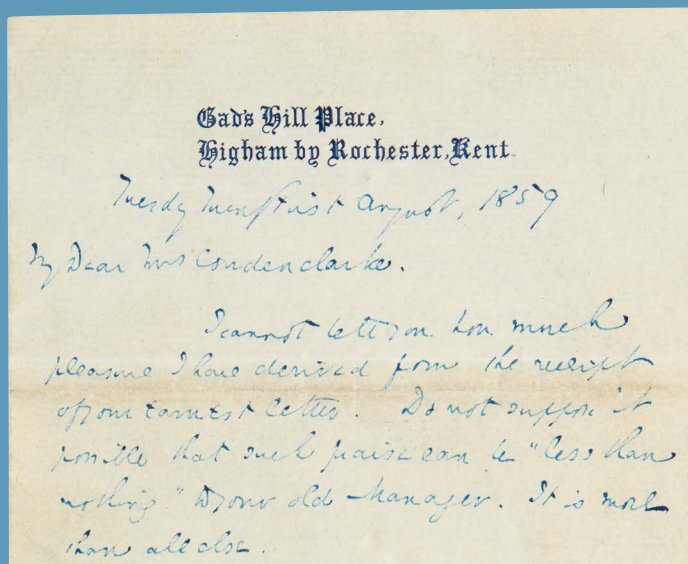 Gad's Hill Place,
Higham by Rochester, Kent.
Tuesdy Twenty first August, 1859
My Dear Mrs Cowdenclarke.
I cannot tell you how much
pleasure I have derived from the receipt
of your earnest letter. Do not suppose it
possible that such praise can be "less than
nothing" to your old Manager. It is more
than all else.